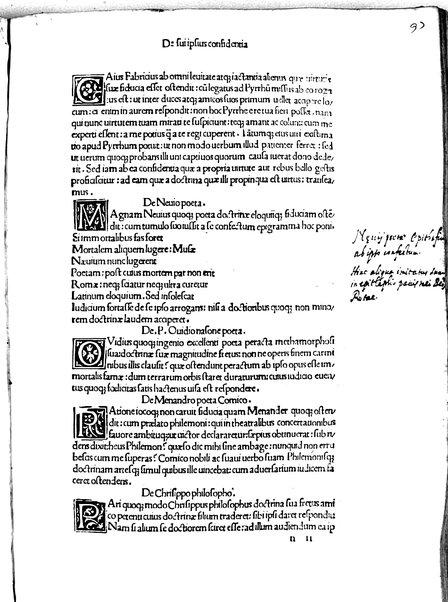 De sui ipsius confidentia
CAius Fabricius ab omni leuitate atq; iactantia alienus quæ uirtutis
suæ fiducia esset ostendit: cū legatus ad Pyrrhū missus ab eo roga
tus est: ut inter duces atq; amicos suos primum uellet accipere lo
cum: ei enim in aurem respondit: non hoc Pyrrhe ex re tua fieri posset. nam
qui nunc uirtutem tuam mirari te suspiciunt: req; amant ac colunt: cum me
experti essent: a me potius q̄ a te regi cuperent. Tātumq; eius uiri existima
tio apud Pyrrhum potuit: ut non modo uerbum illud patienter ferret: sed
ut uerum quoq; probans illi uni captiuos quorum causa iuerat dono dede
rit. Sed iam ab ea confidentia quæ a propria uirtute aut rebus bello gestis
proficiscitur: ad eam quæ a doctrina quæ illi propinqua est uirtus: transea
mus.
De Neuio poeta.
MAgnam Neuius quoq; poeta doctrinæ eloquiiq; fiduciam ostē
dit: cum tumulo suo iussit a se confectum epigramma hoc poni.
Si immortalibus fas foret
Mortalem aliquem lugere: Musæ
Nauium nunc lugerent
Poetam: post cuius mortem par non erit
Romæ: neq; fuatur neq; ultra curetur
Latinum eloquium. Sed insolescat
Iudicium fortasse de se ipso arrogans: nisi a doctioribus quoq; non mino
rem doctrinæ laudem acceperet.
De .P. Ouidio nasone poeta.
OVidius quoq; ingenio excellenti poeta peracta methamorphosi
sua doctrinæ suæ magnitudine fretus: non ne operis finem carmi
nibus illis clausit? quæ ostendunt peractum ab ipso opus esse im
mortalis famæ: dum terrarum orbis staret duraturum: cuius iudicio euen
tus quoq; fœlicitas satis hactenus uisa est respondere.
De Menandro poeta Comico.
RAtione ioco q; non caruit fiducia quam Menander quoq; osten
dit: cum prælato philemoni: qui in theatralibus concertationibus
fauore ambituq; ut uictor declararetur: sepius obtinuerat: subri
dens dixit heus Philemon? quæso dic mihi sine ambage: nunquid non eru
bescis cum me superas? Comico nobili ac suaui uerbo suam Philemonisq;
doctrinam artesq; simul quibus ille uincebat: cum aduersarium iudicem ta
ceret ostendens.
De Chrisippo philosopho.
PAri quoq; modo Chrysippus philosophus doctrina sua fretus ami
co petenti cuius doctrinæ filium traderet: sibi ipsi daret respondit
Nam si alium se doctiorem sciret esse: ad illum audiendum ea ip
n ii